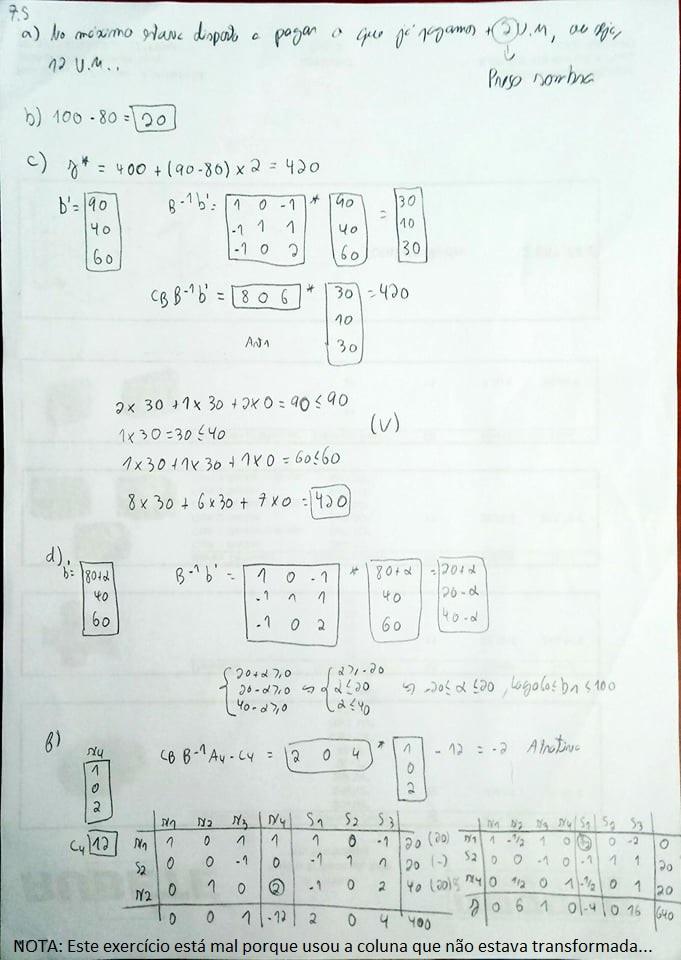 7.5
a) No máximo estava disposto a pagar o que já pagamos + 2 U.M, ou seja,
12 U.M..
Preço sombra
b) 100 - 80 = 20
c) z* = 400 + (90-80) x 2 = 420
b' = 90 40 60 B⁻¹b' = 1 0 -1 -1 1 1 -1 0 2 * 90 40 60 = 30 10 30
CB B⁻¹b' = 8 0 6 * 30 10 30 = 420
2x 30 + 1x 30 + 2x0 = 90 ≤ 90
1x30 = 30 ≤ 40 (V)
1x30 + 1x30 + 1x0 = 60 ≤ 60
8x30 + 6x30 + 7x0 = 420
d) b' = 80+α 40 60 B⁻¹b' = 1 0 -1 -1 1 1 -1 0 2 * 80+α 40 60 = 20+α 20-α 40-α
20+α ≥ 0 α ≥ -20
20-α ≥ 0 ⇔ α ≤ 20 ⇔ -20 ≤ α ≤ 20, logo 60 ≤ b1 ≤ 100
40-α ≥ 0 α ≤ 40
f) x4 1 0 2 CB B⁻¹A4 - C4 = 2 0 4 * 1 0 2 - 12 = -2 Atrativa
C4 12
x1 x2 x3 x4 S1 S2 S3
x1 1 0 1 1 1 0 -1 20 (20)
S2 0 0 -1 0 -1 1 1 20 (-)
x2 0 1 0 2 -1 0 2 40 (20)
0 0 1 -12 2 0 4 400
x1 x2 x3 x4 S1 S2 S3
x1 1 -1/2 1 0 0 -2 0
S2 0 0 -1 0 -1 1 1 20
x4 0 1/2 0 1 -1/2 0 1 20
z 0 6 1 0 -4 0 16 640
NOTA: Este exercício está mal porque usou a coluna que não estava transformada...